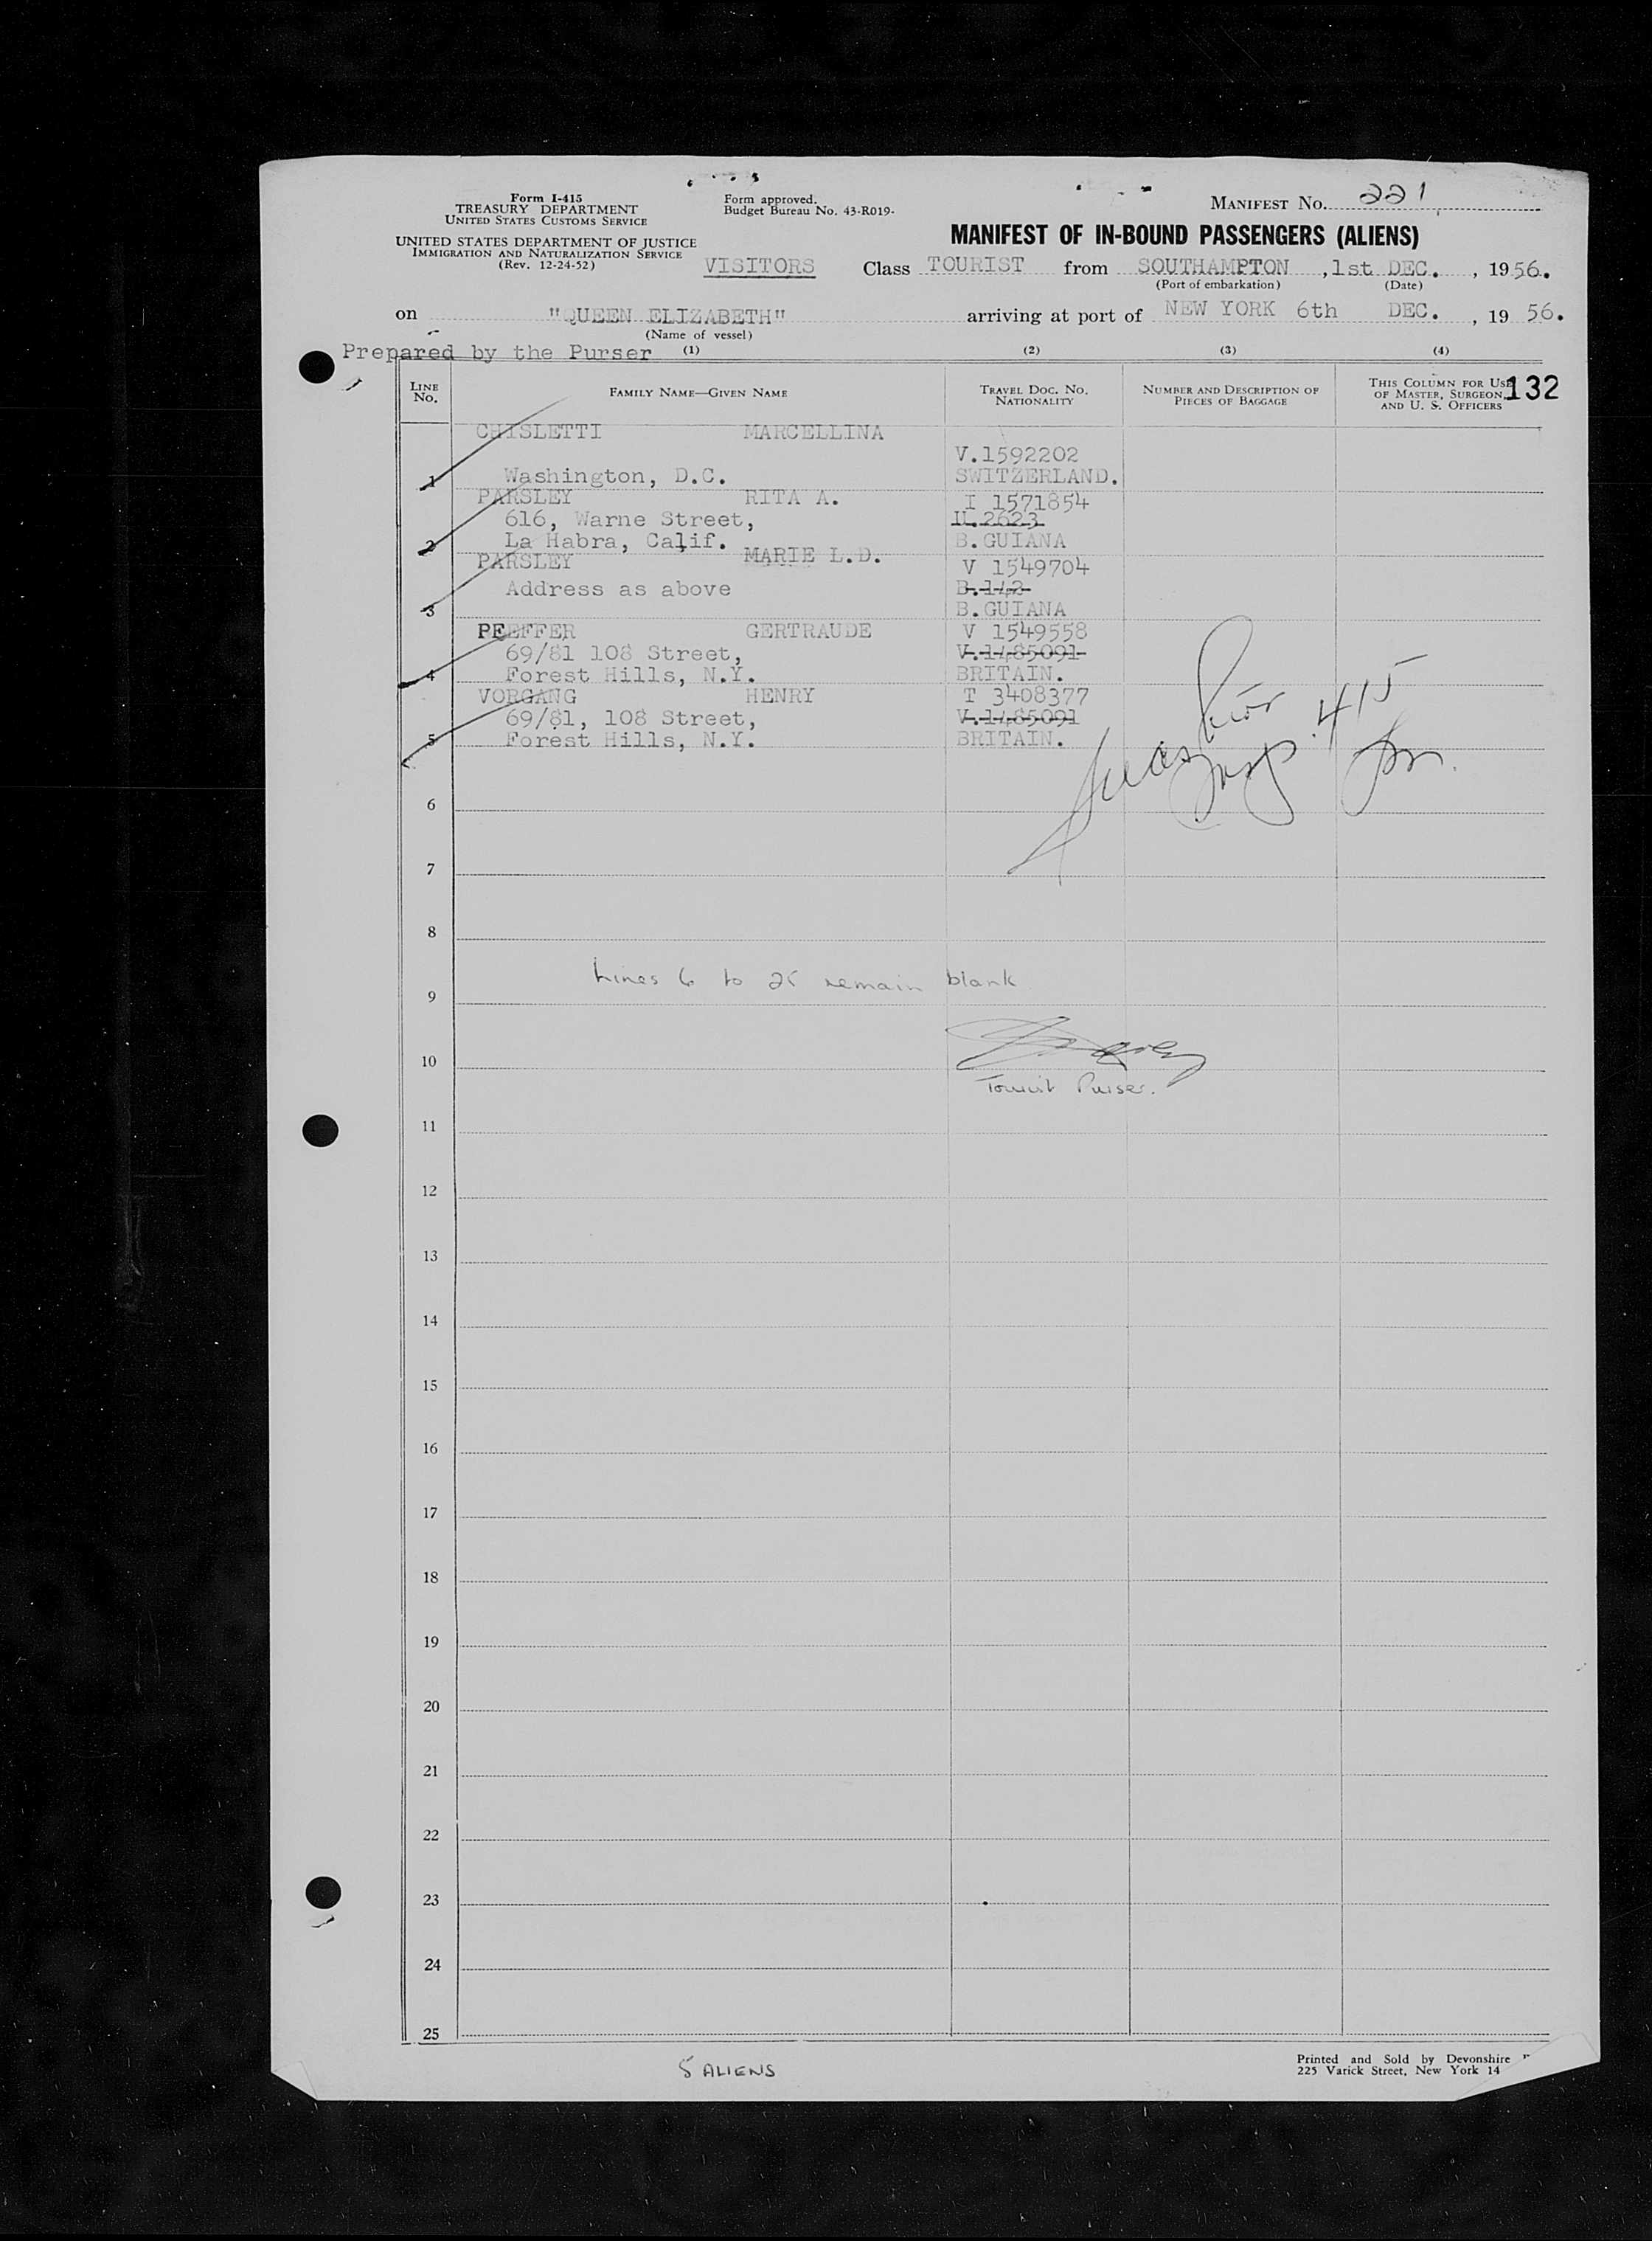 Form I-415
TREASURY DEPARTMENT
UNITED STATES CUSTOMS SERVICE
Form approved.
Budget Bureau No. 43-R019-
MANIFEST NO. 221
UNITED STATES DEPARTMENT OF JUSTICE
IMMIGRATION AND NATURALIZATION SERVICE
(Rev. 12-24-52)
MANIFEST OF IN-BOUND PASSENGERS (ALIENS)
VISITORS Class TOURIST from SOUTHAMPTON , 1st DEC. , 1956.
(Port of embarkation) (Date)
on "QUEEN ELIZABETH" arriving at port of NEW YORK 6th DEC. , 19 56.
(Name of vessel)
Prepared by the Purser (1) (2) (3) (4)
LINE No. FAMILY NAME—GIVEN NAME TRAVEL DOC. NO. NATIONALITY NUMBER AND DESCRIPTION OF PIECES OF BAGGAGE THIS COLUMN FOR USE OF MASTER, SURGEON, AND U. S. OFFICERS 132
CHISLETTI MARCELLINA
V.1592202
1 Washington, D.C. SWITZERLAND.
PARSLEY RITA A. I 1571854
616, Warne Street, II.2623
2 La Habra, Calif. B.GUIANA
PARSLEY MARIE L.D. V 1549704
Address as above B.142
3 B.GUIANA
PFEFFER GERTRAUDE V 1549558
69/81 108 Street, V.1485091
4 Forest Hills, N.Y. BRITAIN.
VORGANG HENRY T 3408377
69/81, 108 Street, V.1485091
5 Forest Hills, N.Y. BRITAIN.
415
6
7
8
Lines 6 to 25 remain blank
9
10
Tourist Purser.
11
12
13
14
15
16
17
18
19
20
21
22
23
24
25
5 ALIENS
Printed and Sold by Devonshire
225 Varick Street, New York 14